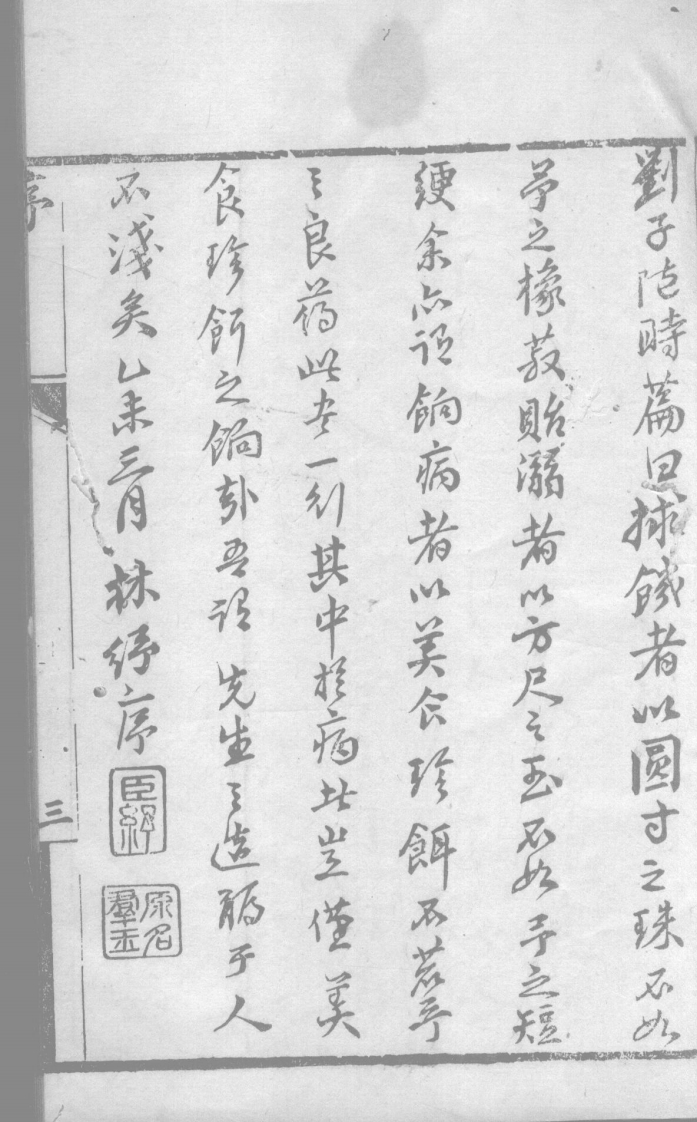 劉子隨時篇曰拯饑者以圓寸之珠不如
予之橡菽貽溺者以方尺之玉不如予之短
綆余亦謂餉病者以美食珍餌不若予
之良药此書一行其中於病者豈僅美
食珍餌之餉外吾謂先生之造福于人
不淺矣乙未三月林紓序
臣紓
原名羣玉
序
三